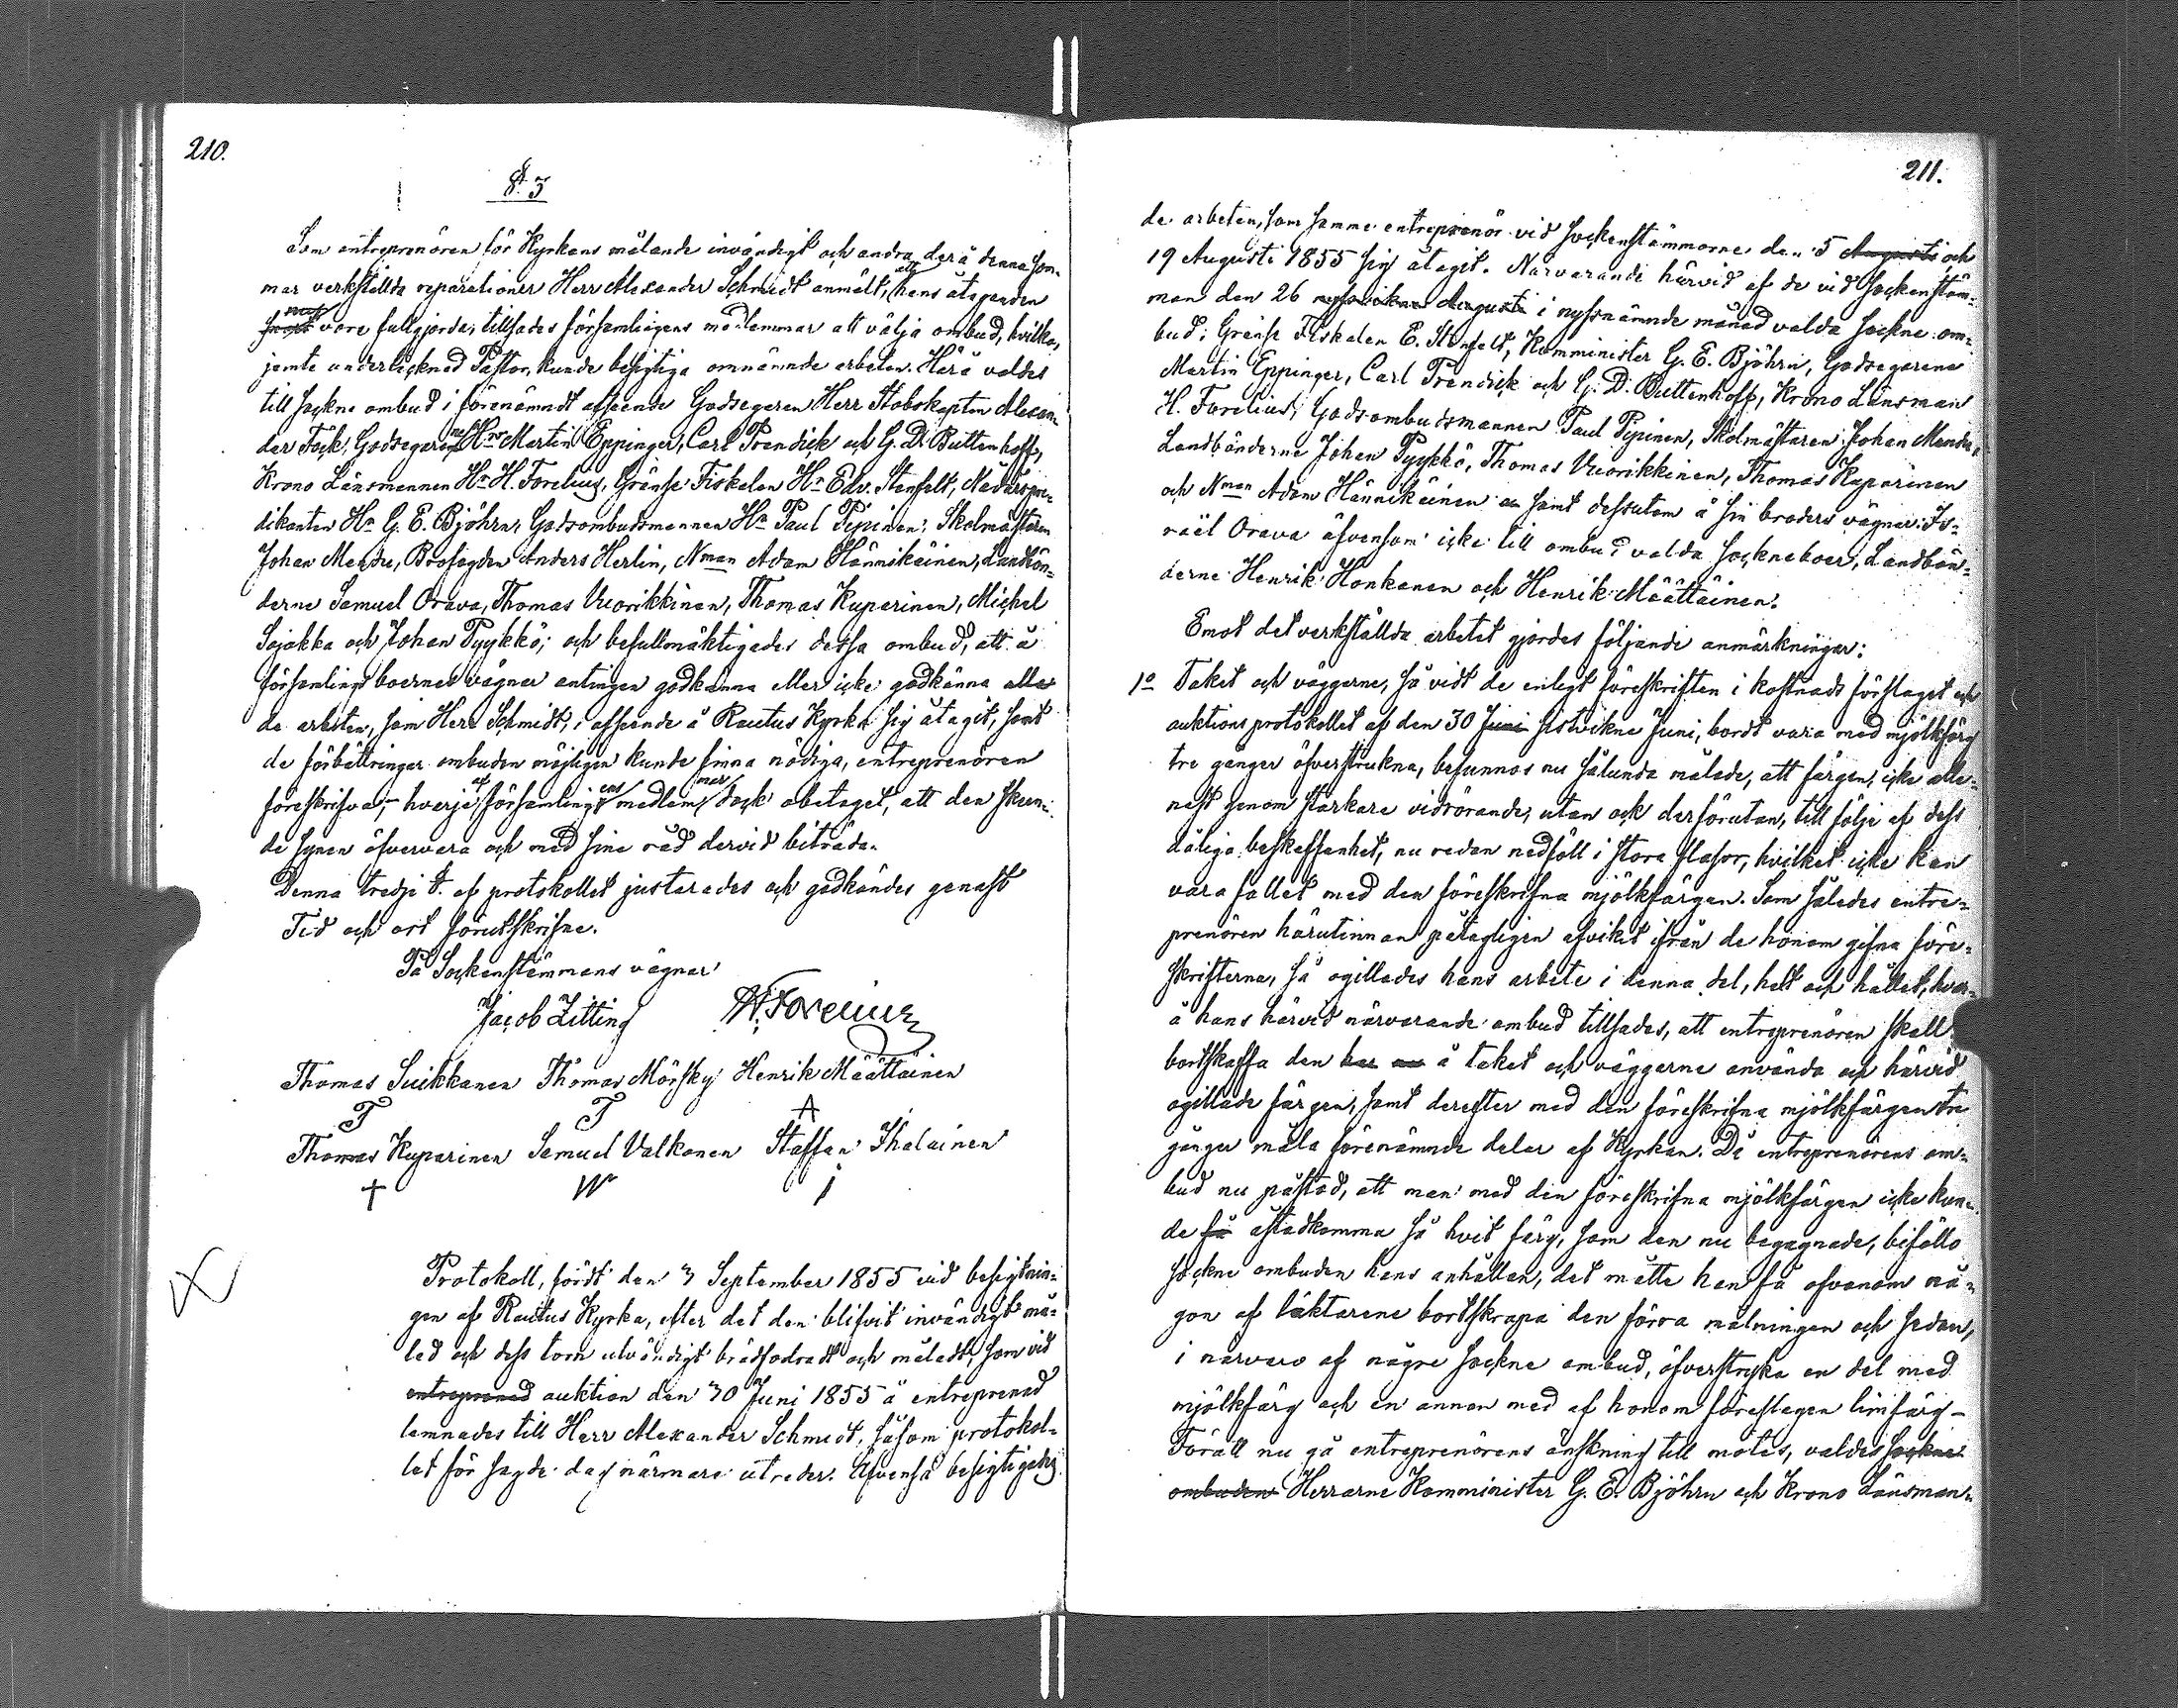 210.
§. 3
Som entreprenören för Kyrkans målande invändigt och andra derå denna som-
mar verkställda reparationer Herr Alexander Schmidt anmält, att hans åtaganden
nu vore fullgjorda, tillsades församlingens medlemmar att välja ombud, hvilka,
jemte undertecknad Pastor, kunde besigtiga omnämnde arbeten. Härå valdes
till sockne ombud i förenämndt afseende Godsegaren Herr Stabskapten Alexan-
der Fock, Godsegarena Hrr Martin Eppinger, Carl Frendick och G. D. Buttenhoff,
Krono Länsmannen Hr H. Forelius, Gränse Fiskalen Hr Edv. Stenfelt, Nådårspre-
dikanten Hr G. E. Björhn, Godsombudsmannen Hr Paul Pipinen, Skolmästaren
Johan Mendu, Brofogden Anders Herlin, Nman Adam Hännikäinen, Landbön-
derne Samuel Orava, Thomas Vuorikkinen, Thomas Kuparinen, Michel
Sojakka och Johan Pyykkö; och befullmäktigades dessa ombud, att å
församlingsboernes vägnar antingen godkänna eller icke godkänna alla
de arbeten, som Herr Schmidt, i afseende å Rautus Kyrka sig åtagit, samt
de förbättringar ombuden möjligen kunde finna nödiga, entreprenören
föreskrifva, – hvarje af församlingens medlemmar dock obetaget, att den skeen-
de synen öfvervara och med sina råd dervid biträda.
Denna tredje §. af protokollet justerades och godkändes genast
Tid och ort förutskrifne.
På Sockenstämmans vägnar
Jacob Zitting H. Forelius
Thomas Suikkanen Thomas Mörsky Henrik Määttäinen
T T A
Thomas Kuparinen Samuel Valkonen Staffan Ihalainen
+ W I
Protokoll, fördt den 3 September 1855 vid besigtnin-
gen af Rautus Kyrka, efter det den blifvit invändigt må-
lad och dess torn utvändigt brädfodradt och måladt, som vid
entreprenad auktion den 30 Juni 1855 å entreprenad
lemnades till Herr Alexander Schmidt, såsom protokol-
let för sagde dag närmare utreder. Äfvenså besigtigades
211.
de arbeten, som samme entreprenör vid sockenstämmorne den 5 Augusti och
19 Augusti 1855 sig åtagit. Närvarande härvid af de vid sockenstäm-
man den 26 Augusti i nyssnämnde månad valda sockne om-
bud: Gränse Fiskalen E. Stenfelt, Komminister G. E. Björhn, Godsegarena
Martin Eppinger, Carl Frendick och G. D. Buttenhoff, Krono Länsman
H. Forelius, Godsombudsmannen Paul Pipinen, Skolmästaren Johan Mendu,
Landbönderne Johan Pyykkö, Thomas Vuorikkinen, Thomas Kuparinen
och Nman Adam Hännikäinen samt dessutom å sin broders vägnar Is-
raël Orava äfvensom icke till ombud valda sockneboer, Landbön-
derne Henrik Honkanen och Henrik Määttäinen.
Emot det verkställda arbetet gjordes följande anmärkningar:
1o Taket och väggarne, så vidt de enligt föreskriften i kostnads förslaget och
auktions protokollet af den 30 Juni sistvikne Juni, bordt vara med mjölkfärg
tre gånger öfverstrukna, befunnos nu sålunda målade, att färgen, icke alle-
nast genom starkare vidrörande, utan ock derförutan, till följe af dess
dåliga beskaffenhet, nu redan nedföll i stora flagor, hvilket icke kan
vara fallet med den föreskrifna mjölkfärgen. Som således entre-
prenören härutinnan påtagligen afvikit ifrån de honom gifna före-
skrifterna, så ogillades hans arbete i denna del, helt och hållet, hvar-
å hans härvid närvarande ombud tillsades, att entreprenören skall
bortskaffa den å taket och väggarne använda och härvid
ogillade färgen, samt derefter med den föreskrifna mjölkfärgen tre
gånger måla förenämnde delar af Kyrkan. Då entreprenörens om-
bud nu påstod, att man med den föreskrifna mjölkfärgen icke kun-
de få åstadkomma så hvit färg, som den nu begagnade, biföllo
sockne ombuden hans anhållan, det måtte han få ofvanom nå-
gon af läktarene bortskrapa den förra målningen och sedan,
i närvaro af någre sockne ombud, öfverstryka en del med
mjölkfärg och en annan med af honom föreslagen limfärg –
För att nu gå entreprenörens önskning till mötes, valdes sockne
ombuden Herrarne Komminister G. E. Björhn och Krono Länsman-